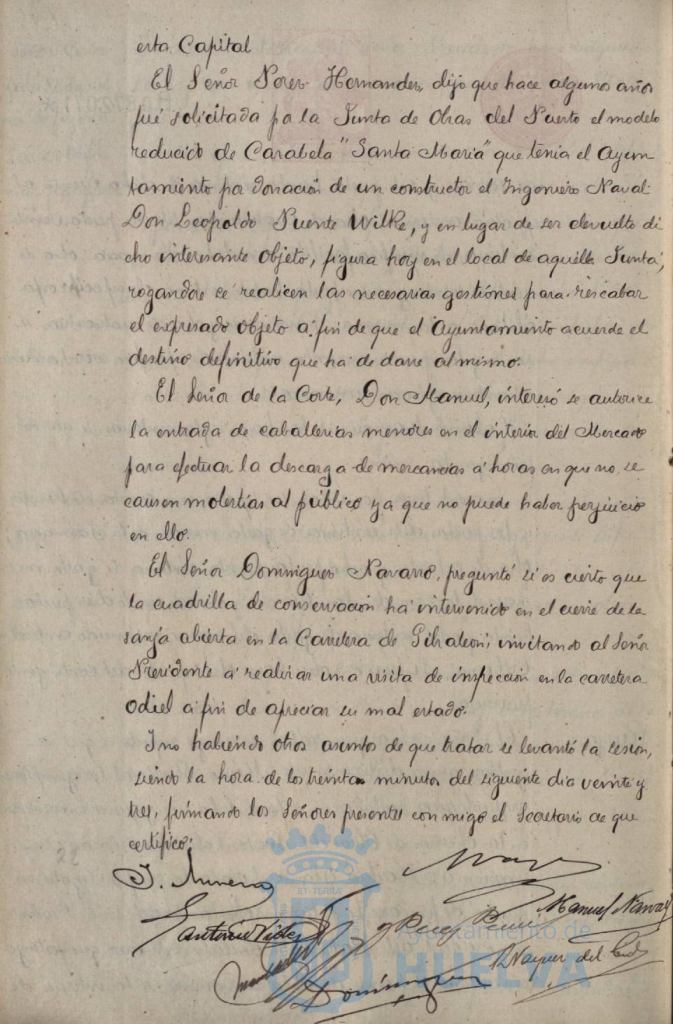 esta Capital
El Señor Perez Hernandez, dijo que hace algunos años
fué solicitada pa la Junta de Obras del Puerto el modelo
reducido de Carabela "Santa Maria" que tenia el Ayun-
tamiento por donación de un constructor el Ingeniero Naval
Don Leopoldo Puente Wilke, y en lugar de ser devuelto di
cho interesante objeto, figura hoy en el local de aquella Junta,
rogandose se realicen las necesarias gestiónes para rescabar
el expresado objeto a fin de que el Ayuntamiento acuerde el
destino definitivo que há de darse al mismo.
El Señor de la Corte, Don Manuel, interesó se autorice
la entrada de caballerias menores en el interior del Mercado
para efectuar la descarga de mercancias a horas en que no se
causen molestias al público ya que no puede haber perjuicio
en ello.
El Señor Dominguez Navarro, preguntó si es cierto que
la cuadrilla de conservación há intervenido en el cierre de la
sanja abierta en la Carretera de Gibraleon, invitando al Señor
Presidente a realizar una visita de inspección en la carretera
Odiel a fin de apreciar su mal estado.
I no habiendo otros asuntos de que tratar se levantó la sesión,
siendo la hora de los treinta minutos del siguiente dia veinte y
tres, firmando los Señores presentes con migo el Secretario de que
certifico:
Manuel Navarro
Antonio
Dominguez
Ayuntamiento de
HUELVA